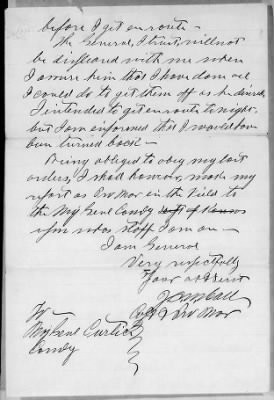 before I get en route –
The General, I trust, will not
be displeased with me when
I assure him that I have done all
I could do to get them off as he desired,
I intended to get en route to night,
but I am informed that I would have
been turned back –
Being obliged to obey my last
orders, I shall however, make my
report as Pro Mar in the Field to
the Maj Genl Comdg
upon whos staff I am on –
I am General
Very respectfully
Your obt Servt
Capt & Pro Mar
To
Maj Genl Curtis
Comdg